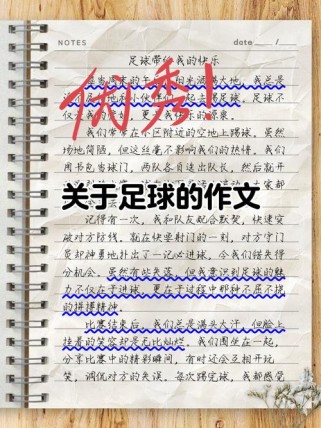 NOTES
date
足球带给我的快乐
优秀!
足球不
我们常常在小区附近的空地上踢球。虽然
场地简陋，但这丝毫不影响我们的热情。我们
用书包当球门，两队各自选出队长，然后就开
关于足球的作文
记得有一次，我和队友配合默契，快速突
破对方防线。就在快要射门的一刻，对方守门
员却神勇地扑出了一记必进球，令我们错失得
分机会。虽然有些失落，但我意识到足球的魅
力不仅在于进球，更在于过程中那种不屈不挠
的拼搏精神。
比赛结束后，我们总是满头大汗，但脸上
挂着的笑容却是无比灿烂。我们围坐在一起，
分享比赛中的精彩瞬间，有时还会互相开玩
笑，调侃对方的失误。每次踢完球，我都感觉